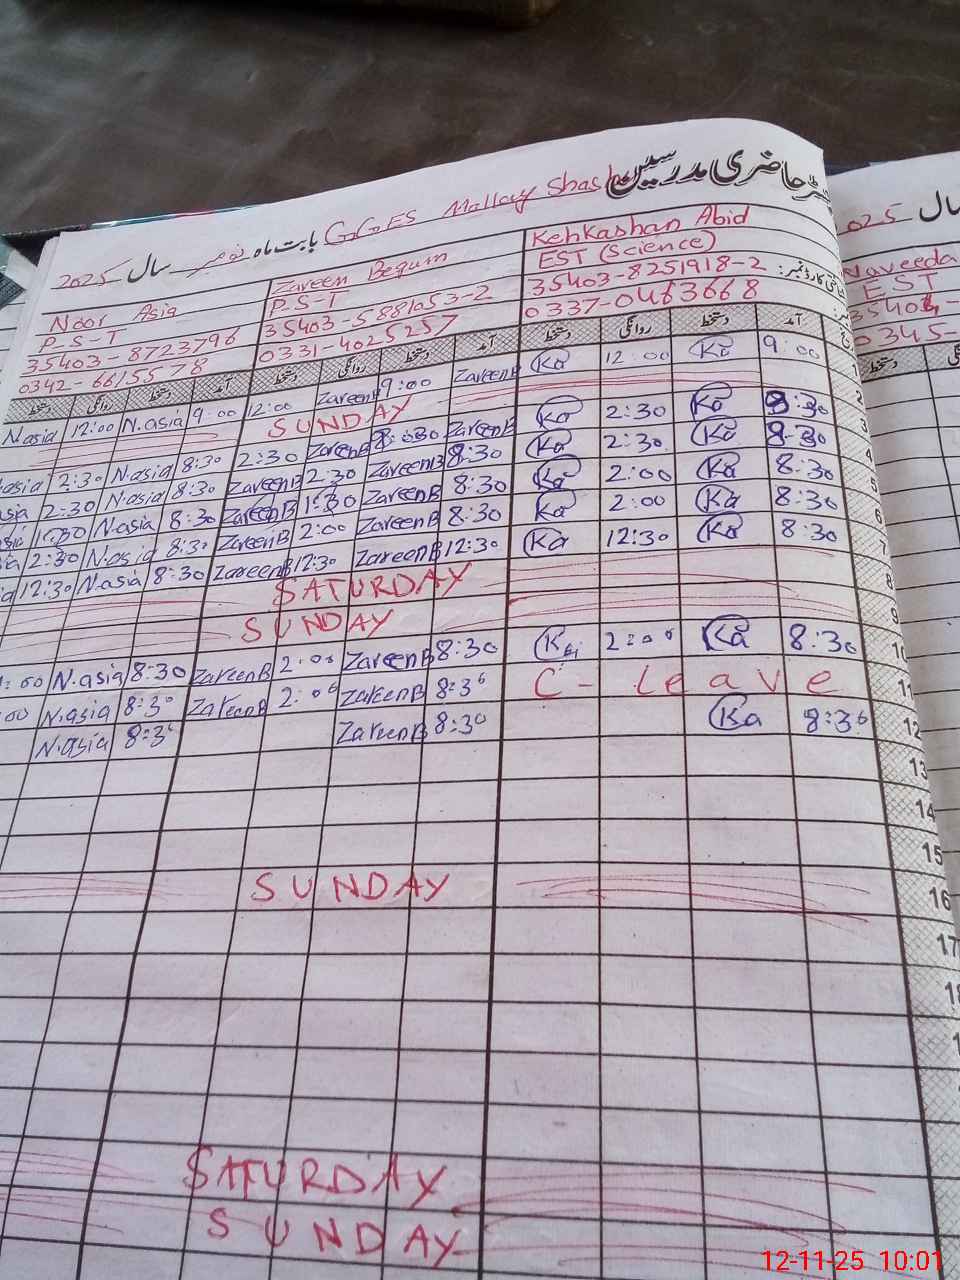 حاضری مدرسین
بابت ماہ نومبر سال 2025 GGES Mallay Shas
2025 سال
Kehkashan Abid
EST (Science)
35403-8251918-2
0337-0463668
Zareen Begum
P-S-T
35403-5881053-2
0331-4025257
Noor Asia
P-S-T
35403-8723796
0342-6615578
Naveeda
EST
0345-
دستخط روانگی دستخط آمد دستخط روانگی دستخط آمد دستخط روانگی دستخط آمد
N.asia 12:00 N.asia 9:00 12:00 ZareenB 9:00 ZareenB Ka 12:00 Ka 9:00 1
SUNDAY 2
asia 2:30 N.asia 8:30 2:30 ZareenB 8:30 ZareenB Ka 2:30 Ka 8:30 3
asia 2:30 N.asia 8:30 ZareenB 2:30 ZareenB 8:30 Ka 2:30 Ka 8:30 4
N.asia 8:30 ZareenB 1:30 ZareenB 8:30 Ka 2:00 Ka 8:30 5
2:30 N.asia 8:30 ZareenB 2:00 ZareenB 8:30 Ka 2:00 Ka 8:30 6
12:30 N.asia 8:30 ZareenB 12:30 ZareenB 12:30 Ka 12:30 Ka 8:30 7
SATURDAY 8
SUNDAY 9
:00 N.asia 8:30 ZareenB 2:00 ZareenB 8:30 2:00 Ka 8:30 10
:00 N.asia 8:30 ZareenB 2:00 ZareenB 8:30 C-leave 11
N.asia 8:30 ZareenB 8:30 Ka 8:30 12
13
14
15
SUNDAY 16
17
18
SATURDAY
SUNDAY
12-11-25 10:01